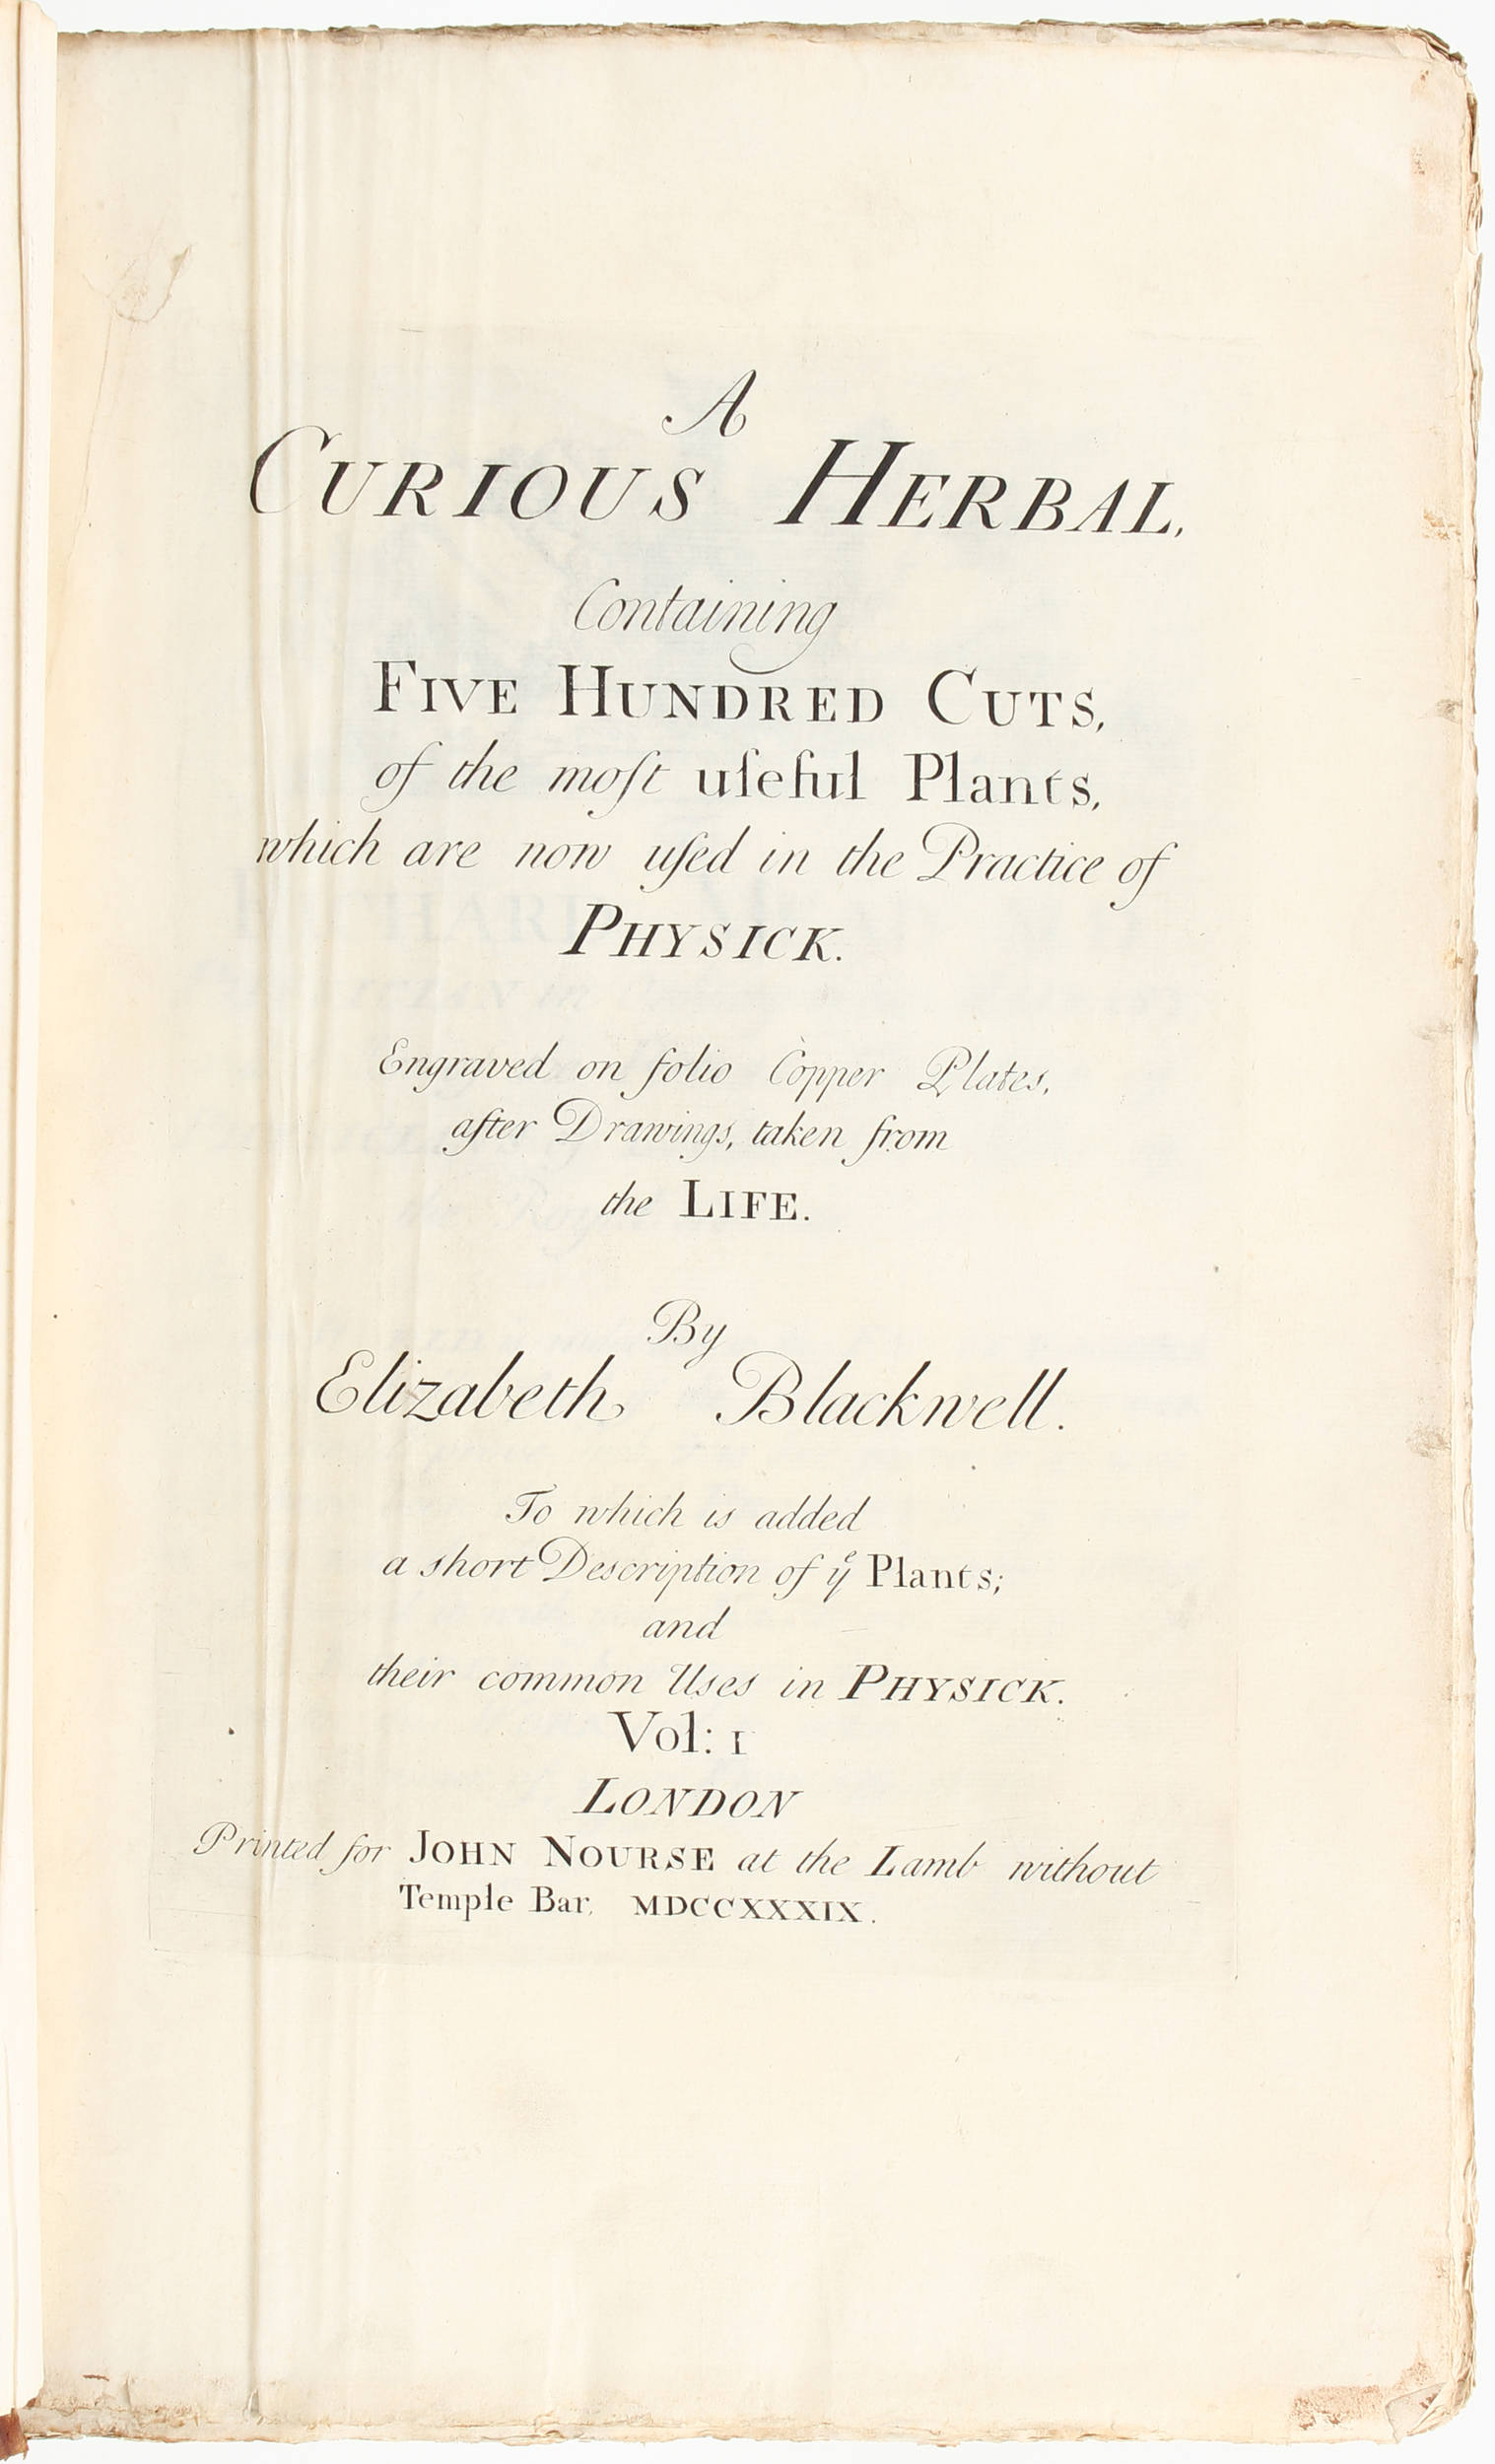 A
CURIOUS HERBAL,
Containing
FIVE HUNDRED CUTS,
of the moſt uſeful Plants,
which are now uſed in the Practice of
PHYSICK.
Engraved on folio Copper Plates,
after Drawings, taken from
the LIFE.
By
Elizabeth Blackwell.
To which is added
a short Description of yᵉ Plants;
and
their common Uses in PHYSICK.
Vol: I
LONDON
Printed for JOHN NOURSE at the Lamb without
Temple Bar, MDCCXXXIX.